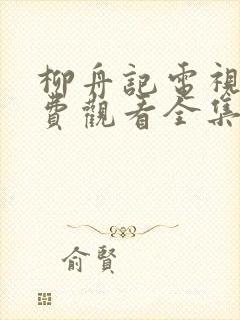 柳舟記電視
費觀看全集
俞賢